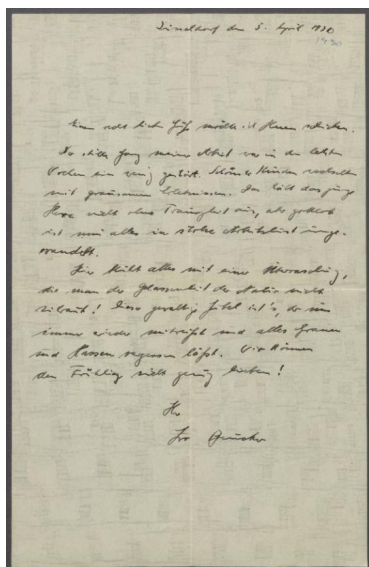 Düsseldorf den 5. April 1930
1930
Einen recht lieben Gruß möchte ich Ihnen schicken.
Der stille Gang meiner Arbeit war in den letzten
Wochen ein wenig gestört. Schöne Stunden wechselten
mit grausamen Erlebnissen. Das hält das junge
Herz nicht ohne Traurigkeit aus, aber
ist nun alles in starke Arbeitslust umge-
wandelt.
Hier blüht alles mit einer Überraschung,
die man der Gelassenheit der Natur nicht
zutraut! Dieser gewaltige Jubel ist's, der uns
immer wieder mitreißt und alles Grauen
und Hassen vergessen läßt. Wir können
den Frühling nicht genug lieben!
Ihr